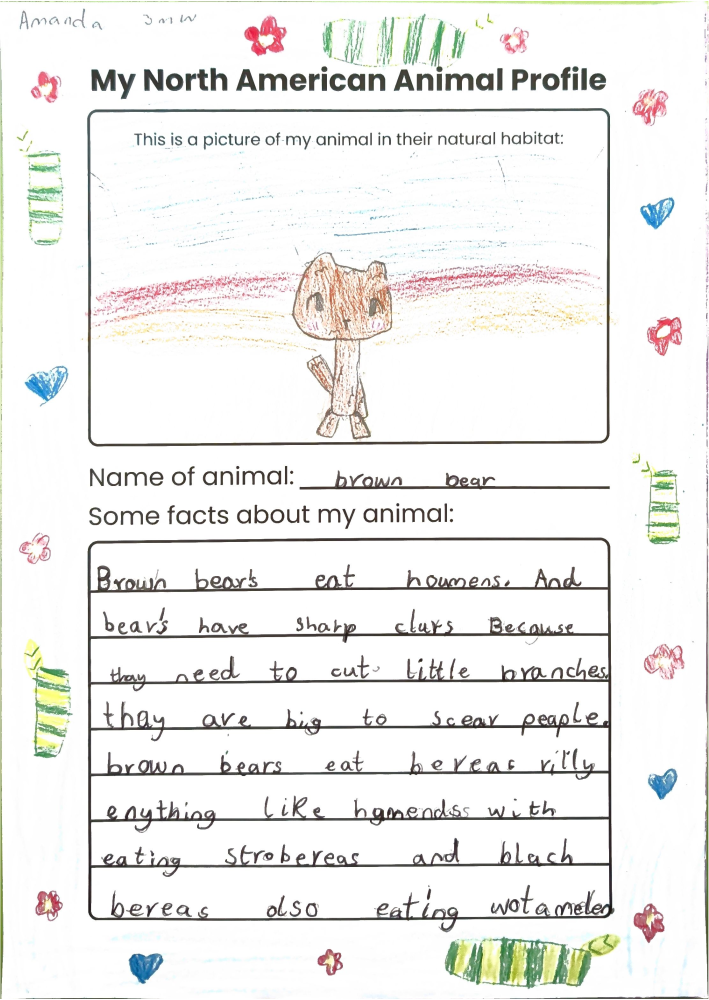 Amanda 3mw
My North American Animal Profile
This is a picture of my animal in their natural habitat:
Name of animal: brown bear
Some facts about my animal:
Brown bear's eat houmens. And
bear's have sharp clurs Because
thay need to cut little branches.
thay are big to scear peaple.
brown bears eat bereas rilly
enything like with
eating strobereas and blach
bereas olso eating wotamelen